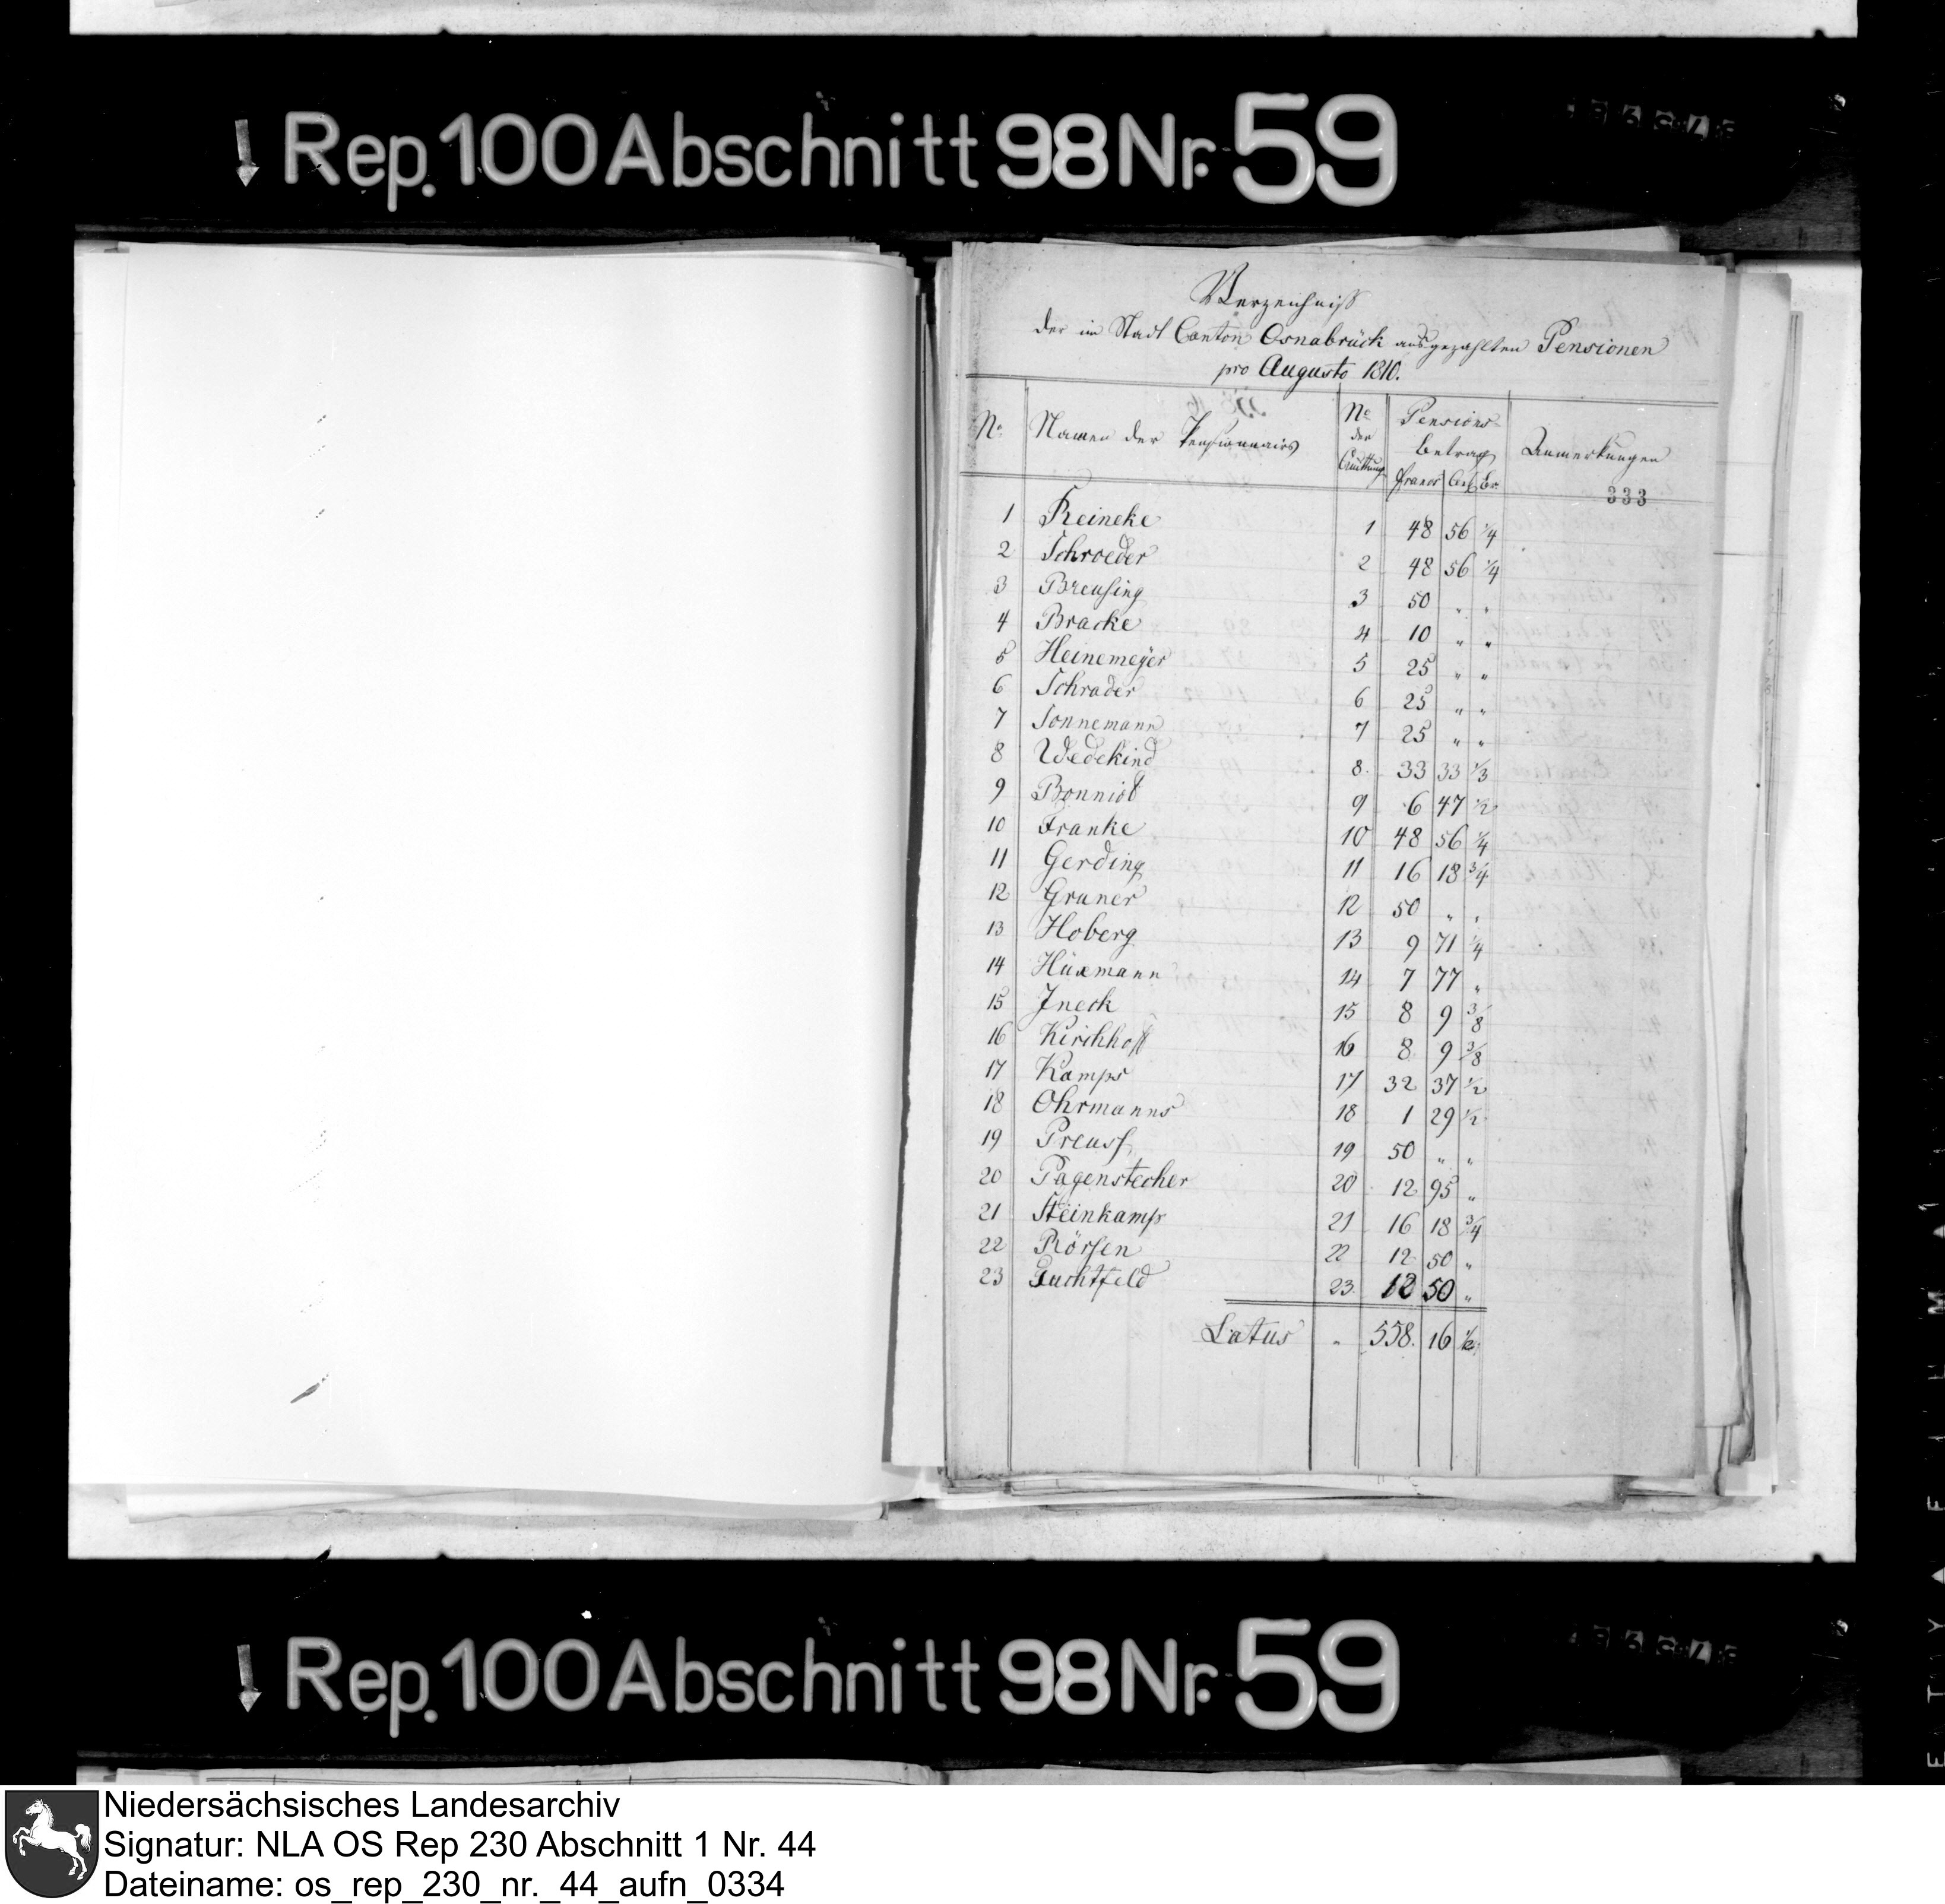 Rep. 100 Abschnitt 98 Nr. 59
Verzeichniß
der im Stadt Canton Osnabrück ausgezahlten Pensionen
pro Augusto 1810.
No Namen der Pensionnairs No der Quittung Pensions Betrag Francs Cent Anmerkungen
333
1 Reineke 1 48 56 1/4
2 Schroeder 2 48 56 1/4
3 Breusing 3 50 " "
4 Bracke 4 10 " "
5 Heinemeyer 5 25 " "
6 Schrader 6 25 " "
7 Sonnemann 7 25 " "
8 Wedekind 8. 33 33 1/3
9 Bonniot 9 6 47 1/2
10 Franke 10 48 56 1/4
11 Gerding 11 16 18 3/4
12 Gruner 12 50 " "
13 Hoberg 13 9 71 1/4
14 Hüxmann 14 7 77 "
15 Jneck 15 8 9 3/8
16 Kirchhoff 16 8 9 3/8
17 Kamps 17 32 37 1/2
18 Ohrmanns 18 1 29 1/2
19 Preuss 19 50 " "
20 Pagenstecher 20 12 95 "
21 Steinkamp 21 16 18 3/4
22 Rörsen 22 12 50 "
23 23. 12 50 "
Latus " 558. 16
Rep. 100 Abschnitt 98 Nr. 59
Niedersächsisches Landesarchiv
Signatur: NLA OS Rep 230 Abschnitt 1 Nr. 44
Dateiname: os_rep_230_nr._44_aufn_0334